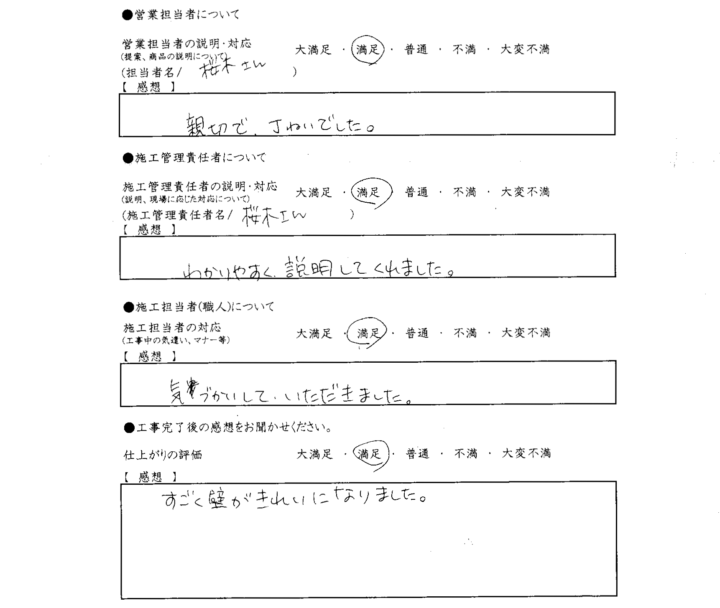 ●営業担当者について
営業担当者の説明・対応 大満足 ・ 満足 ・ 普通 ・ 不満 ・ 大変不満
(提案、商品の説明について)
(担当者名/ 桜木さん )
【 感想 】
親切で、丁ねいでした。
●施工管理責任者について
施工管理責任者の説明・対応 大満足 ・ 満足 ・ 普通 ・ 不満 ・ 大変不満
(説明、現場に応じた対応について)
(施工管理責任者名/ 桜木さん )
【 感想 】
わかりやすく、説明してくれました。
●施工担当者(職人)について
施工担当者の対応 大満足 ・ 満足 ・ 普通 ・ 不満 ・ 大変不満
(工事中の気遣い、マナー等)
【 感想 】
気づかいして、いただきました。
●工事完了後の感想をお聞かせください。
仕上がりの評価 大満足 ・ 満足 ・ 普通 ・ 不満 ・ 大変不満
【 感想 】
すごく壁がきれいになりました。